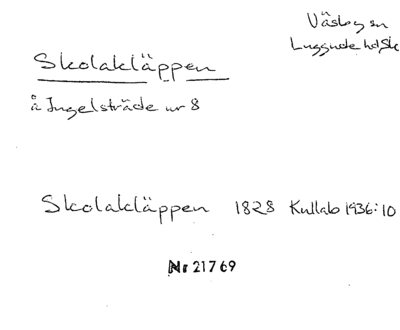 Väsby sn
Luggude hd Sk
Skolakläppen
å Ingelsträde nr 8
Skolakläppen 1828 Kullab 1936:10
Nr 21769